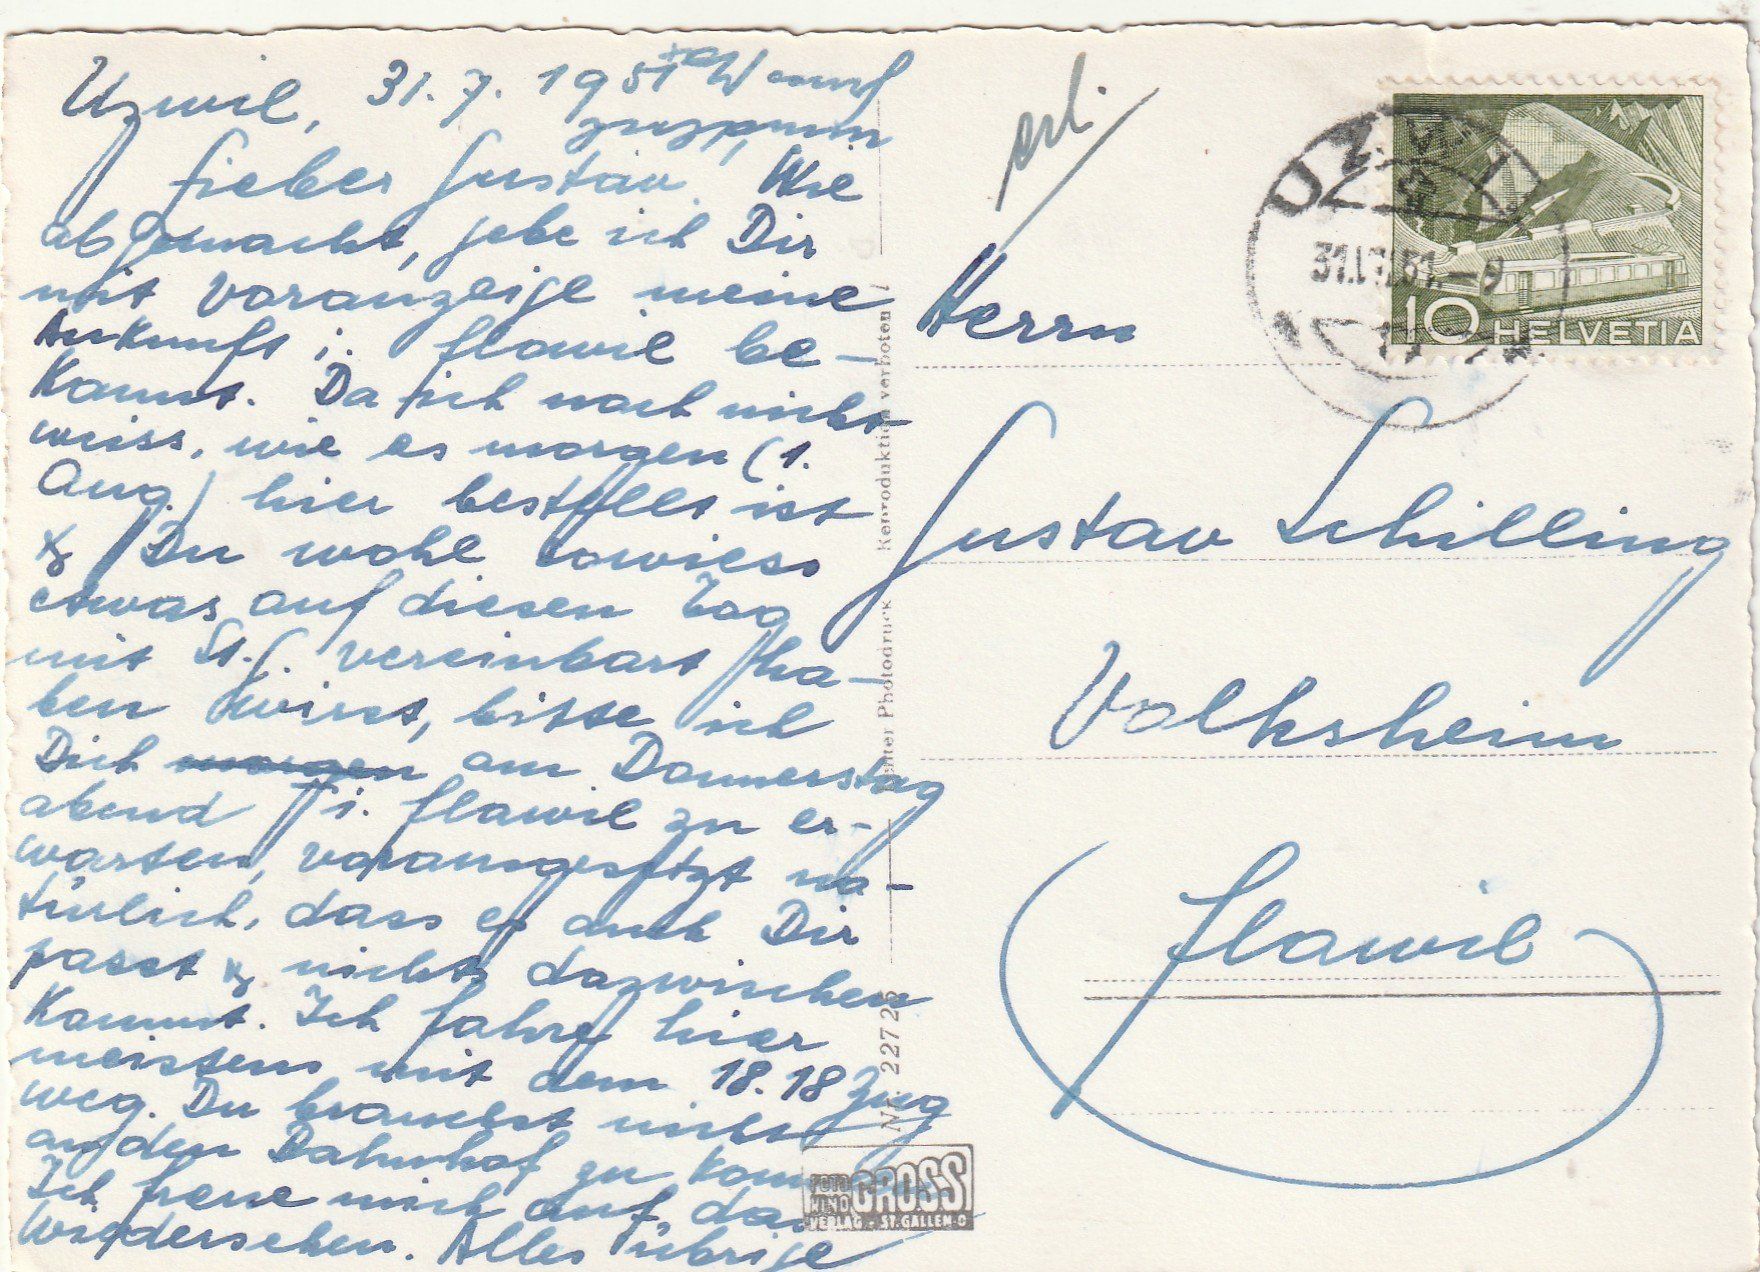 Uzwil, 31.7.1951
Lieber Gustav. Wie
abgemacht, gebe ich Dir
mit Voranzeige meine
Ankunft i. Flawil be-
kannt. Da ich noch nicht
weiss, wie es morgen (1.
Aug.) hier bestellt ist
& Du wohl sowieso
etwas auf diesen Tag
mit St.G. vereinbart ha-
ben wirst, bitte ich
Dich morgen am Donnerstag
abend i. Flawil zu er-
warten, vorausgesetzt na-
türlich, dass es auch Dir
passt & nichts dazwischen
kommt. Ich fahre hier
meistens mit dem 18.18 Zug
weg. Du brauchst nicht
an den Bahnhof zu kom
Ich freue mich auf das
Wiedersehen. Alles übrige
Nr. 22772
Photodruck Reproduktion verboten
FOTO
KINO GROSS
VERLAG - ST. GALLEN
erl.
UZWIL
31.VII.51.-9
10 HELVETIA
Herrn
Gustav Schilling
Volksheim
Flawil